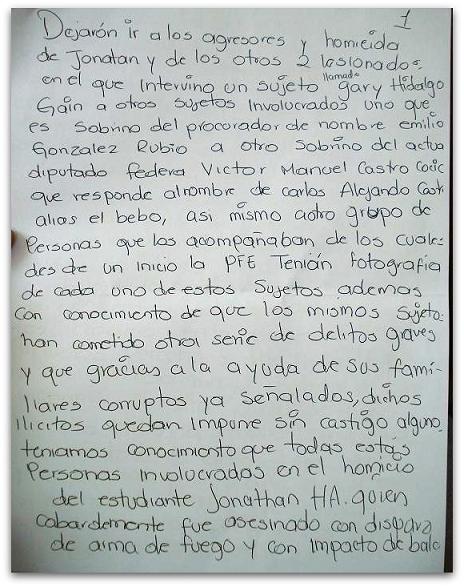 1
Dejarón ir a los agresores y homicida
de Jonatan y de los otros 2 lesionados,
en el que intervino un sujeto llamado gary Hidalgo
Gain a otros sujetos involucrados uno que
es sobrino del procorador de nombre emilio
Gonzalez Rubio a otro sobrino del actua
diputado federa Victor Manuel Castro Cocic
que responde alnombre de carlos Alejando Cast
alias el bebo, asi mismo aotro grupo de
Personas que los acompañaban de los cuale
des de un inicio la PFE Tenián fotografia
de cada uno de estos Sujetos ademas
Con conocimiento de que los mismos Sujeto
han cometido otra serie de delitos graves
y que gracias a la ayuda de sus fami-
liares corruptos ya señalados, dichos
ilicitos quedan Impune sin castigo alguno.
teniamos conocimiento que todas estás
Personas involucradas en el homicio
del estudiante Jonathan HA. quien
cobardemente fue asesinado con dispara
de arma de fuego y con impacto de bala